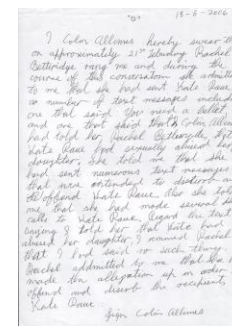 "D" 18-6-2006
I Colin Allumes hereby swear th
on approximately 21st February Rachel
Betteridge rang me and during the
course of the conversation she admitted
to me that she had sent Kate
a number of text messages includi
one that said you need a bullet
and one that said that Colin Allum
had told her Rachel Betteridge, that
Kate had sexually abused her
daughter. She told me that she
had sent numerous text messages
that were intended to disturb an
offend Kate. Also she told
me that she had made several
calls to Kate. Regard the text
saying I told her that Kate had
abused her daughter, I
that I had said no such thing.
Rachel admitted to me that she
made the allegation up in order
offend and disturb the recipient,
Kate
Sign Colin Allumes